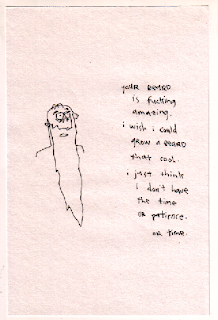 your BEARD
is fucking
amazing.
i wish i could
GROW A BEARD
that cool.
i just think
i don't have
the time
OR patience.
OR time.